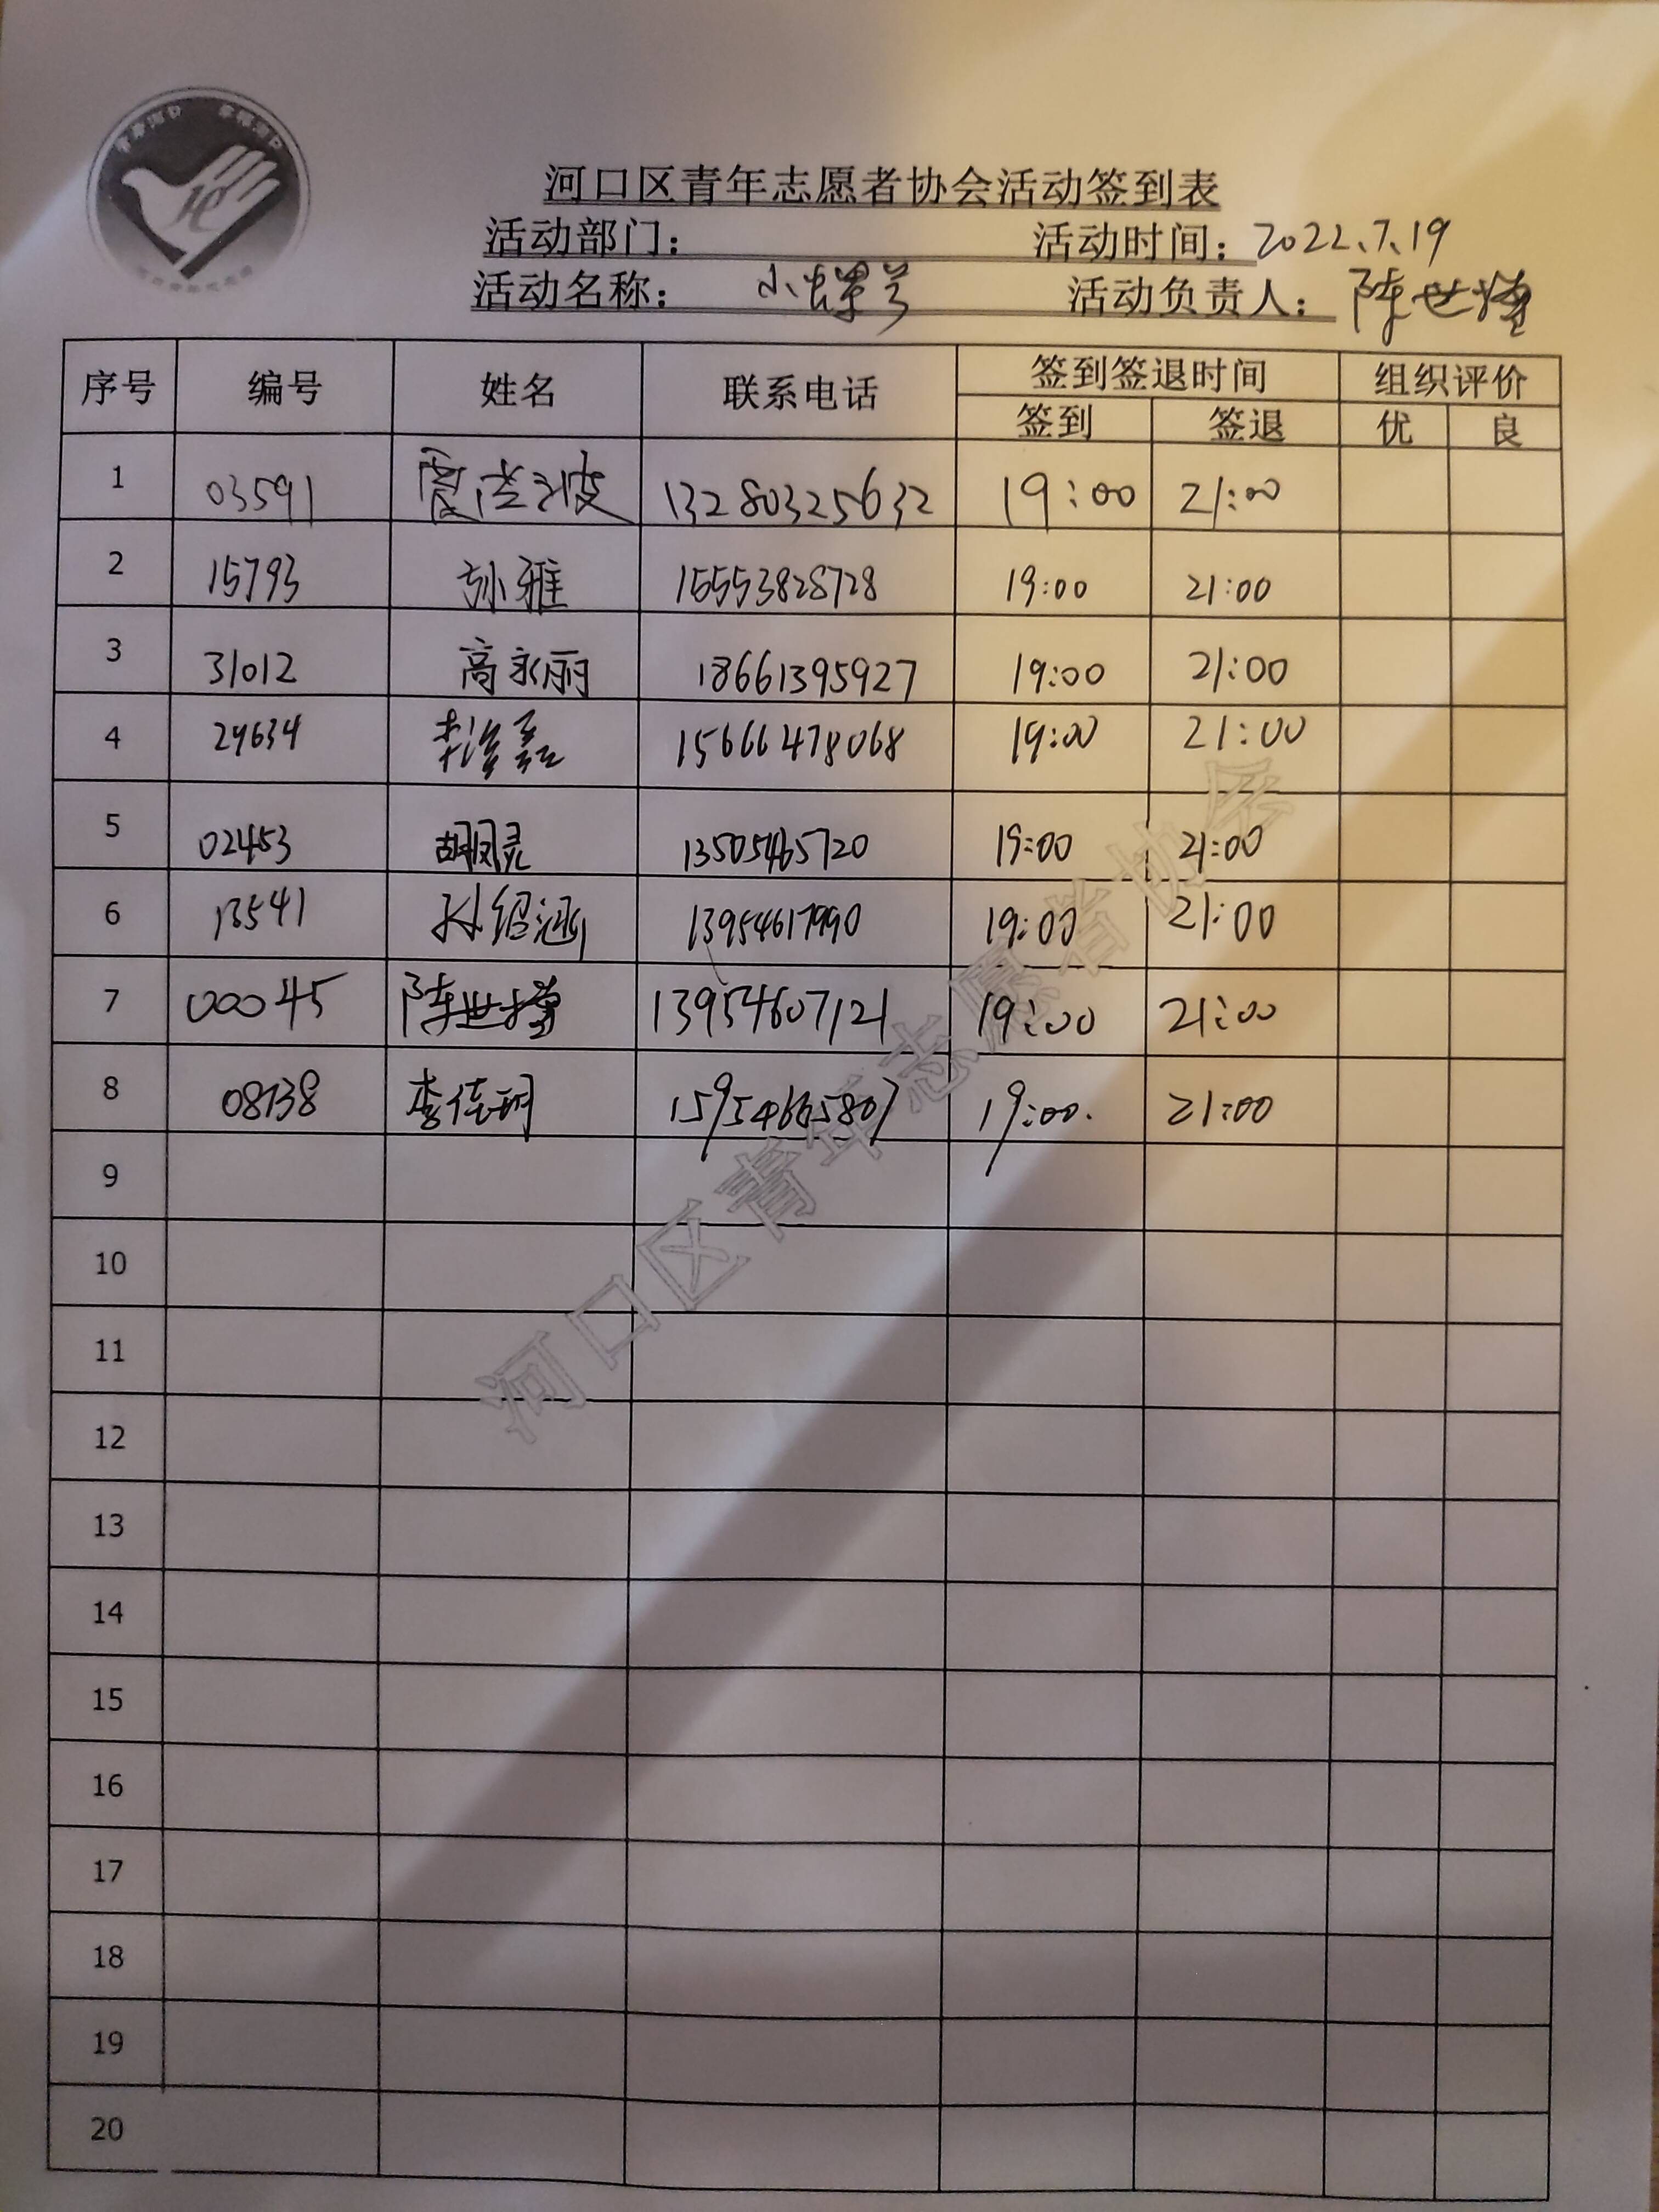 河口区青年志愿者协会活动签到表
活动部门： 活动时间：2022、7、19
活动名称： 小 号 活动负责人：陈世
序号 编号 姓名 联系电话 签到签退时间 组织评价
签到 签退 优 良
1 03591 13280325632 19:00 21:00
2 15793 孙雅 15553828728 19:00 21:00
3 31012 高永丽 18661395927 19:00 21:00
4 29634 15666478068 19:00 21:00
5 02453 胡凤灵 13505465720 19:00 21:00
6 13541 孙绍涵 13954617990 19:00 21:00
7 00045 陈世 13954607121 19:00 21:00
8 08138 李佳玥 15954665807 19:00. 21:00
9
10
11
12
13
14
15
16
17
18
19
20
河口区青年志愿者协会